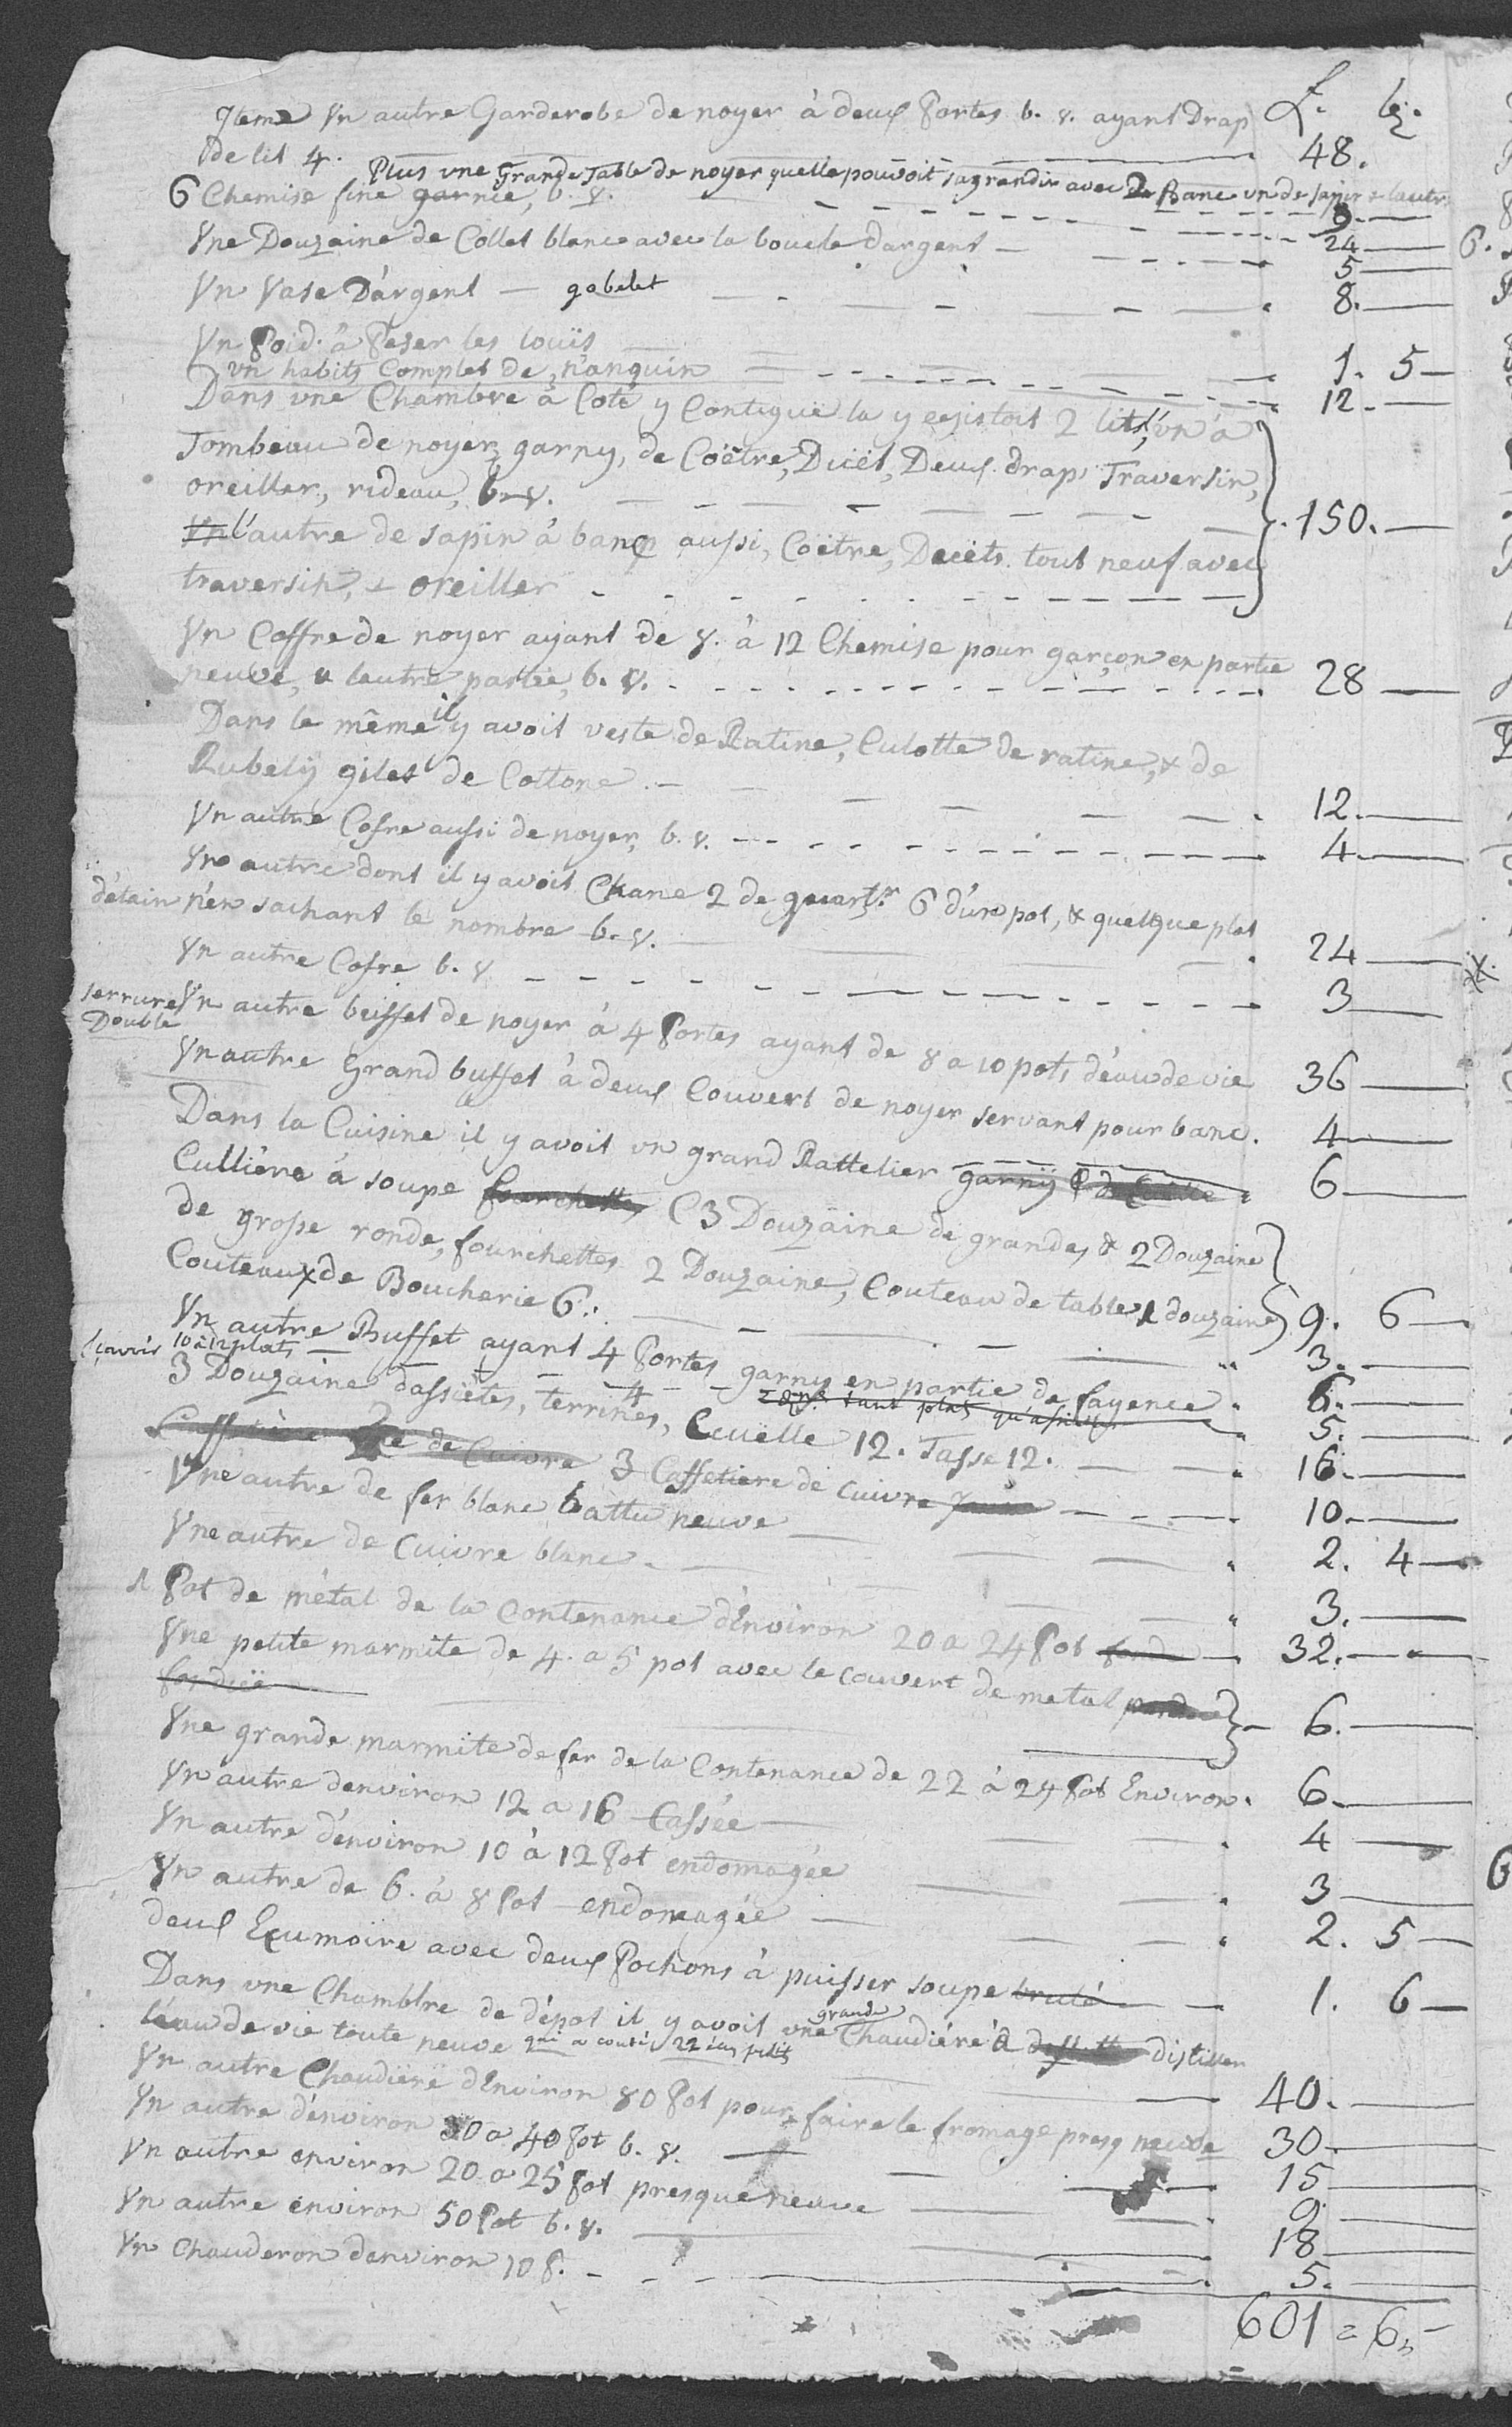 L. bz.
Iteme Vn autre Garderobe de noyer à deux Portes b. v. ayant Drap
de lit 4. 48.
Plus vne Grande Table de noyer quelle pouvoit sagrandir avec 2 Banc vn de sapin & lautr. 9.
6 Chemise fine garnie, b. v. 24
Vne Douzaine de Collet blanc avec la boucle dargent 5
Vn Vase D'argent gobelet 8.
Vn Poid. à Peser les louïs 1. 5
vn habits Complet de nanquin 12.
Dans vne Chambre à Coté y Contiguë la y existoit 2 lits, l'vn à
Tombeau de noyer garny, de Coëtre, Duët, Deux drap Traversin,
oreiller, rideau, b. v. 150.
Vn l'autre de sapin à banq aussi, Coëtre, Duëts tout neuf avec
traversin, & oreiller
Vn Coffre de noyer ayant de 8. à 12 Chemise pour garçon en partie
neuve, & lautre partie, b. v. 28
Dans le même il y avoit veste de Ratine, Culotte de ratine, & de
Rubely gilet de Cottone 12.
Vn autre Cofre aussi de noyer, b. v. 4.
Vn autre dont il y avoit Chane 2 de quartr. 6 d'un pot, & quelque plat
d'étain n'en sachant le nombre b. v. 24
Vn autre Cofre b. v. 3
serrure Vn autre beiffet de noyer à 4 Portes ayant de 8 a 10 pots d'eau de vie 36
Double
Vn autre Grand buffet à deux Couvert de noyer servant pour banc. 4
Dans la Cuisine il y avoit vn grand Rattelier garny 6
Cullière à soupe fourchette C 3 Douzaine de grandes & 2 Douzaine
de grosse ronde, fourchettes 2 Douzaine, Couteau de table 1 douzaine
Couteaux de Boucherie 6. 9. 6
3.
Vn autre Buffet ayant 4 Portes garny en partie de fayence 6.
sçavoir 10 à 12 plats tant plat qu'assiette 5.
3 Douzaine d'assiëtes, terrines, 4 Ecuëlle 12. Tasse 12. 16.
Caffetière de Cuivre 3 Caffetiere de cuivre 10.
Vne autre de fer blanc battu neuve 2. 4
Vne autre de Cuivre blanc 3.
1 Pot de métal de la Contenance d'Environ 20 a 24 Pot 32.
Vne petite marmite de 4. a 5 pot avec le couvert de metal
fonduë 6.
Vne grande marmite de fer de la Contenance de 22 à 24 Pot Environ. 6.
Vn autre denviron 12 a 16 Cassée 4
Vn autre d'environ 10 à 12 Pot endomagée 3
Vn autre de 6. à 8 Pot endomagée 2. 5
deux Ecumoire avec deux Pochons à puisser soupe brulé 1. 6
Dans vne Chambre de dépot il y avoit vne grande Chaudiére à distiller
léau de vie toute neuve qui a couté 22 écus petits 40.
Vn autre Chaudiere d'Environ 80 Pot pour faire le fromage presq neuve 30
Vn autre d'environ 30 a 40 Pot b. v. 15
Vn autre environ 20 a 25 Pot presque neuve 9.
Vn autre environ 50 Pot b. v. 18
Vn Chauderon denviron 10 P. 5.
601 = 6,